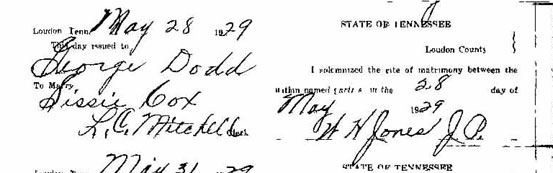 Loudon Tenn. May 28 1929
This day issued to
George Dodd
To Marry,
Sissie Cox
L.C. Mitchell Clerk
Loudon Tenn. May 31 1929
STATE OF TENNESSEE
Loudon County
I solemnized the rite of matrimony between the
within named parties on the 28 day of
May 1929
W H Jones J.P.
STATE OF TENNESSEE